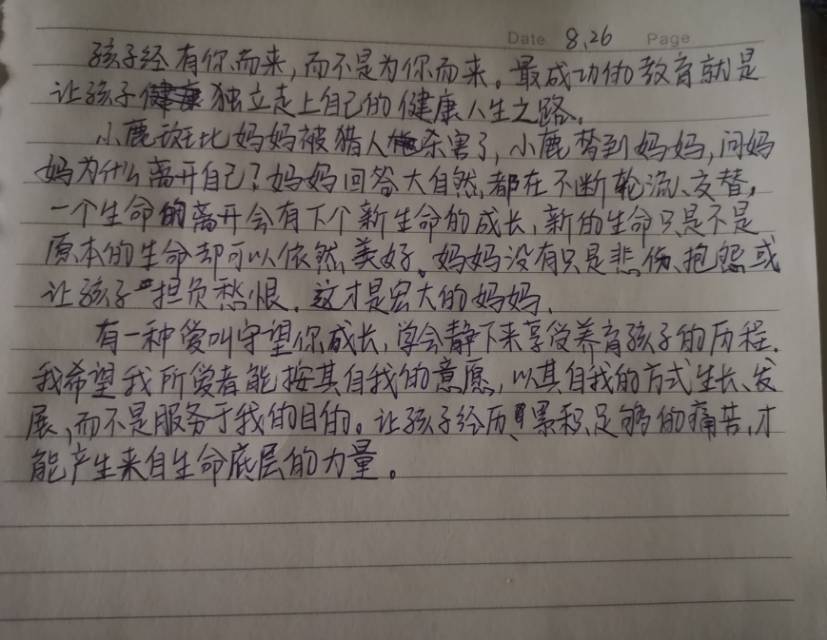 Date 8.26 Page
孩子经有你而来，而不是为你而来。最成功的教育就是
让孩子独立走上自己的健康人生之路。
小鹿斑比妈妈被猎人杀害了，小鹿梦到妈妈，问妈
妈为什么离开自己？妈妈回答大自然，都在不断轮流、交替，
一个生命的离开会有下个新生命的成长，新的生命只是不是
原本的生命却可以依然美好。妈妈没有只是悲伤、抱怨或
让孩子担负愁恨。这才是宏大的妈妈．
有一种爱叫守望你成长，学会静下来享受养育孩子的历程．
我希望我所爱者能按其自我的意愿，以其自我的方式生长、发
展，而不是服务于我的目的。让孩子经历累积足够的痛苦，才
能产生来自生命底层的力量。